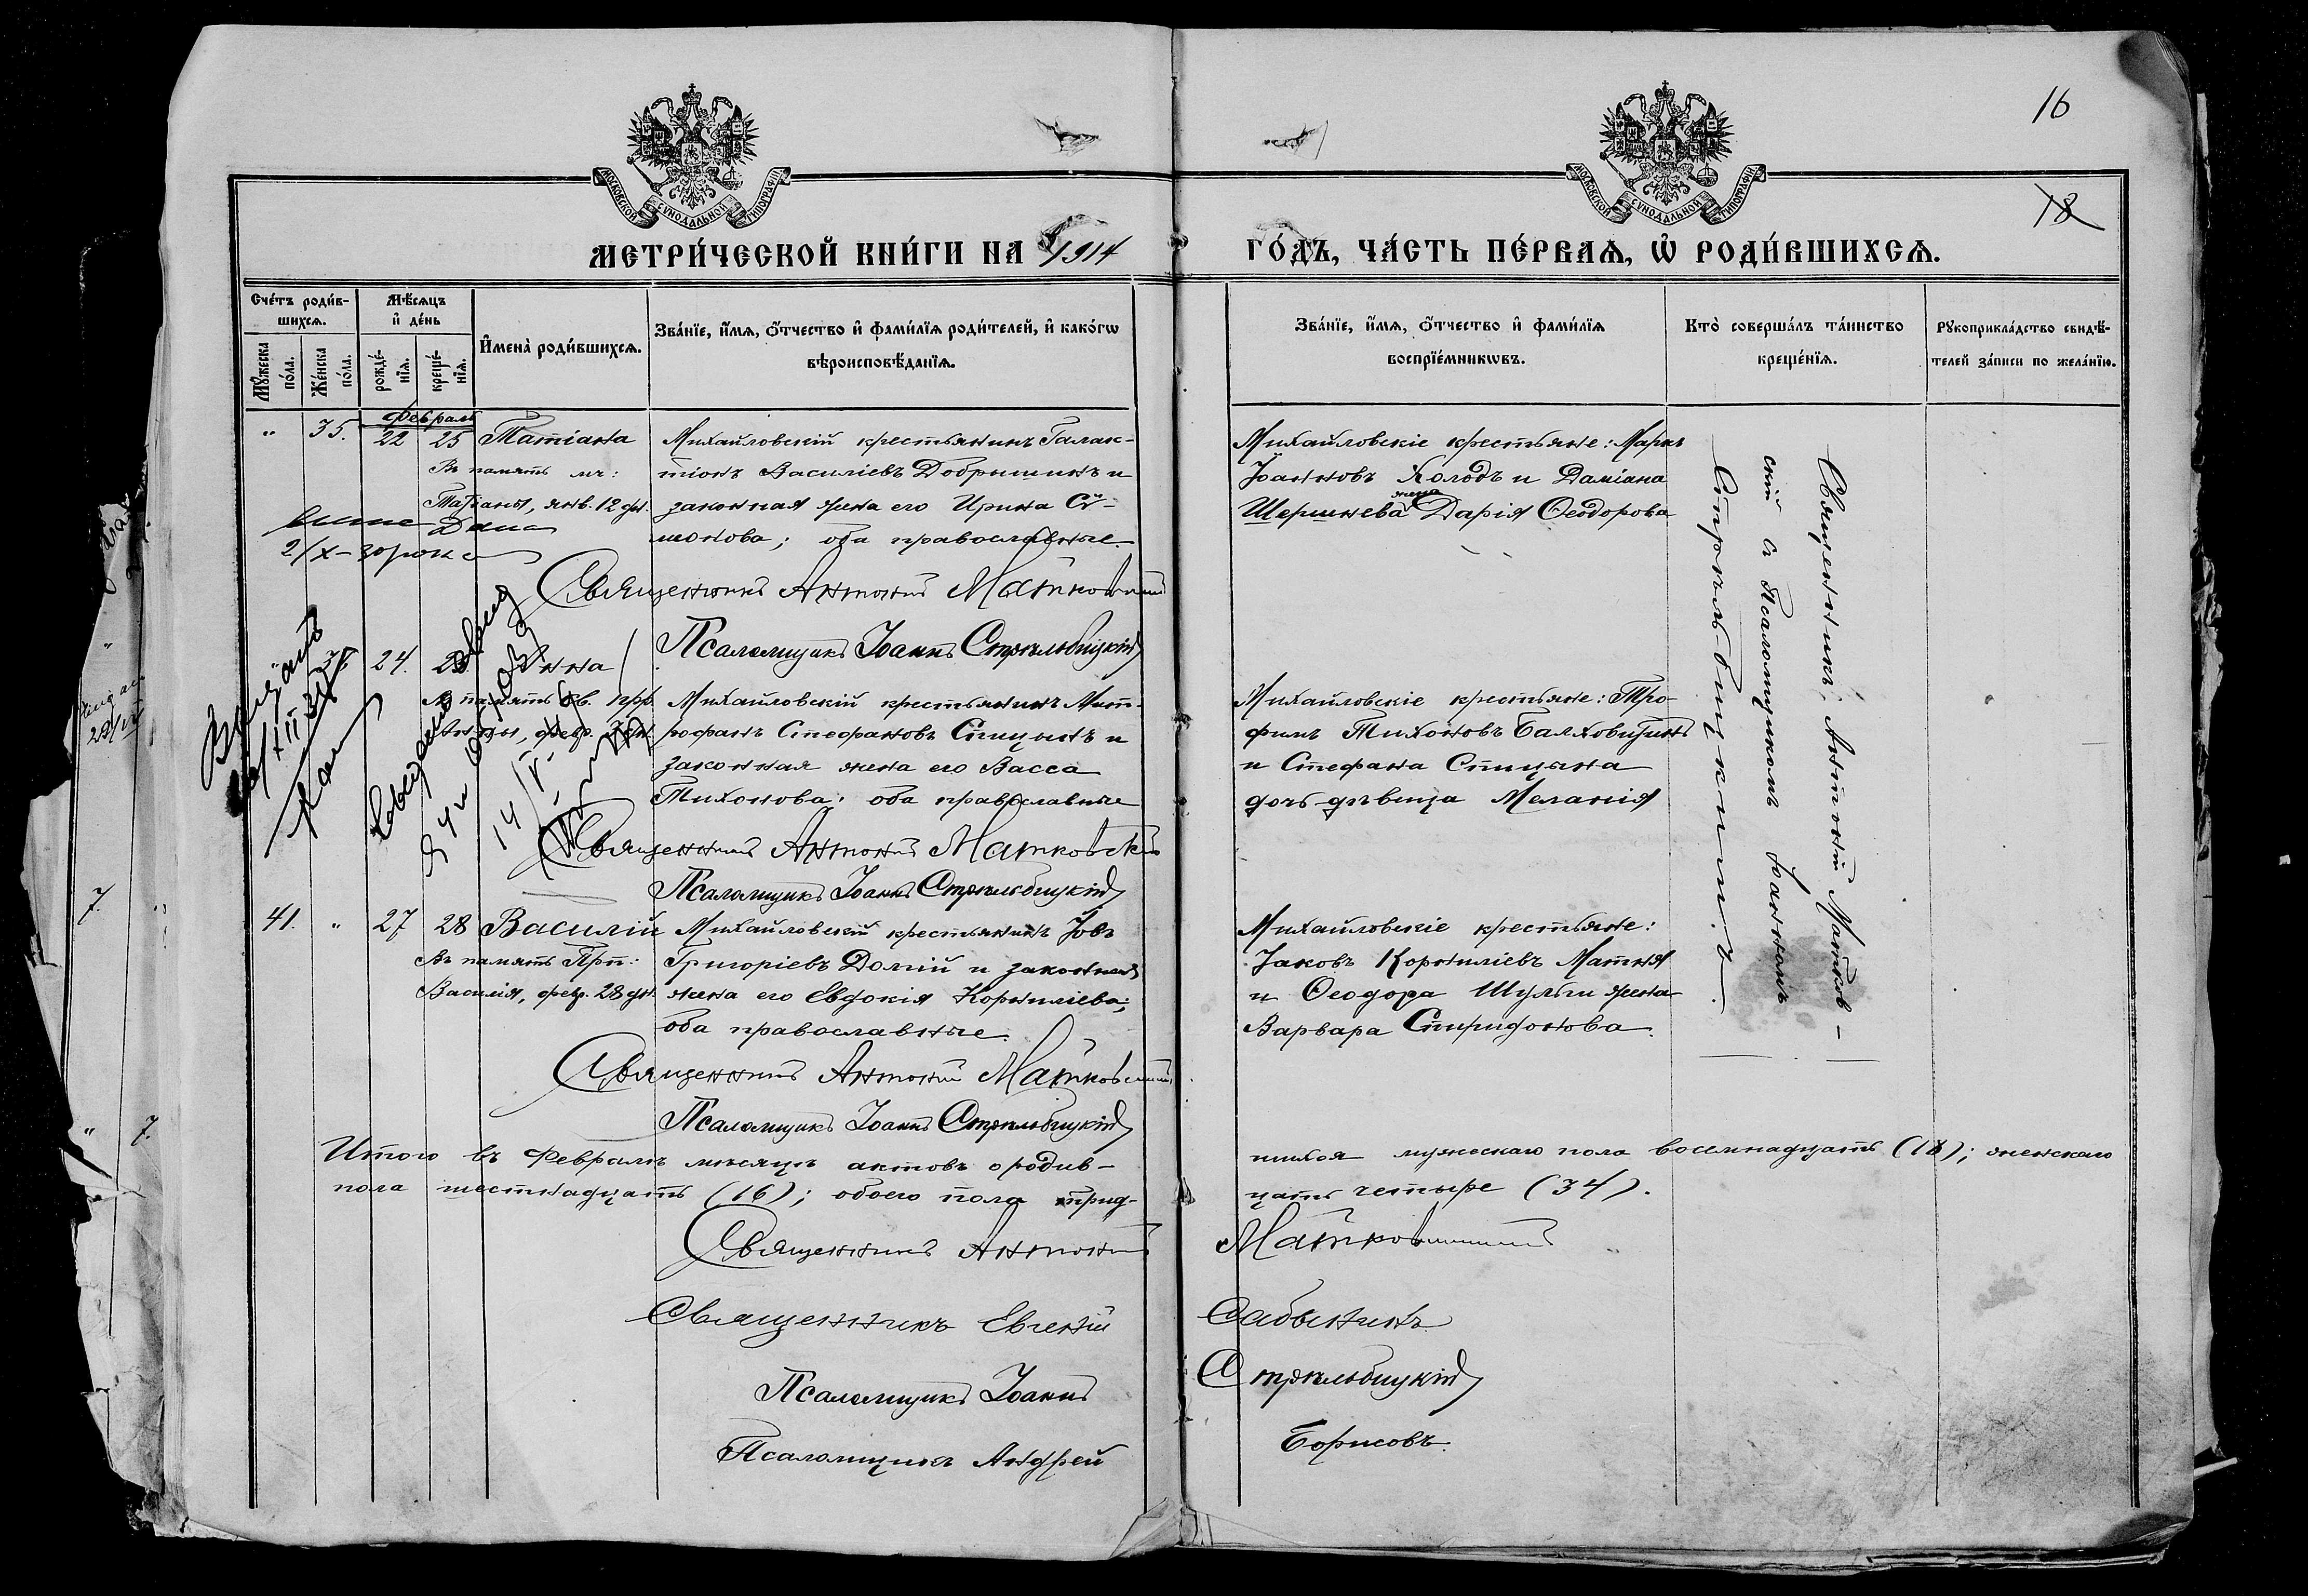 16
18
МОСКОВСКОЙ СѴНОДАЛЬНОЙ ТИПОГРАФІИ
МОСКОВСКОЙ СѴНОДАЛЬНОЙ ТИПОГРАФІИ
МЕТРИ́ЧЕСКОЙ КНИ́ГИ НА 1914
ГО́ДЪ, ЧА́СТЬ ПЕ́РВАѦ, Ѡ҆ РОДИ́ВШИХСѦ.
Сче́тъ роди́в-
шихсѧ.
Мѣ́сѧцъ
и҆ де́нь
Мꙋ́жеска
по́ла.
Же́нска
по́ла.
рожде́-
нїѧ.
креще́-
нїѧ.
И҆мена̀ роди́вшихсѧ.
Зва́нїе, и҆́мѧ, ѻ҆́тчество и҆ фамі́лїѧ роди́телей, и҆ како́гѡ
вѣроисповѣ́данїѧ.
Зва́нїе, и҆́мѧ, ѻ҆́тчество и҆ фамі́лїѧ
воспрїе́мникѡвъ.
Кто̀ соверша́лъ та́инство
креще́нїѧ.
Рꙋкоприкла́дство свидѣ́-
телей за́писи по жела́нїю.
Февраль
" 35. 22 25 Татіана
Въ память мч:
Татіаны, янв. 12 дн.
Михайловскій крестьянинъ Галак-
тіонъ Василіевъ Добрышинъ и
законная жена его Ирина Си-
монова; оба православные.
Священникъ Антоній Матковскій
Псаломщикъ Іоаннъ Стрѣльбицкій
Михайловскіе крестьяне: Маркъ
Іоанновъ Холодъ и Даміана
жена
Шершнева Дарія Ѳеодорова
Священникъ Антоній Матков-
скій съ Псаломщикомъ Іоанномъ
Стрѣльбицкимъ.
36 24. Анна
Въ память св. прр.
Анны, февр. 3 дн.
Михайловскій крестьянинъ Мит-
рофанъ Стефановъ Спицынъ и
законная жена его Васса
Тихонова; оба православные
Священникъ Антоній Матковскій
Псаломщикъ Іоаннъ Стрѣльбицкій
Михайловскіе крестьяне: Тро-
фимъ Тихоновъ
и Стефана Спицына
дочь-дѣвица Меланія
41. " 27 28 Василій
Въ память Прп:
Василія, февр. 28 дн.
Михайловскій крестьянинъ Іовъ
Григоріевъ Долгій и законная
жена его Евдокія Корниліева;
оба православные.
Священникъ Антоній Матковскій
Псаломщикъ Іоаннъ Стрѣльбицкій
Михайловскіе крестьяне:
Іаковъ Корниліевъ Матня
и Ѳеодора Шульги жена
Варвара Спиридонова.
Итого въ Февралѣ мѣсяцѣ актовъ о родив-
шихся мужескаго пола восемнадцать (18); женскаго
пола шестнадцать (16); обоего пола трид-
цать четыре (34).
Священникъ Антоній Матковскій
Священникъ Евгеній Сабынинъ
Псаломщикъ Іоаннъ Стрѣльбицкій
Псаломщикъ Андрей Борисовъ.
7.
" 7.